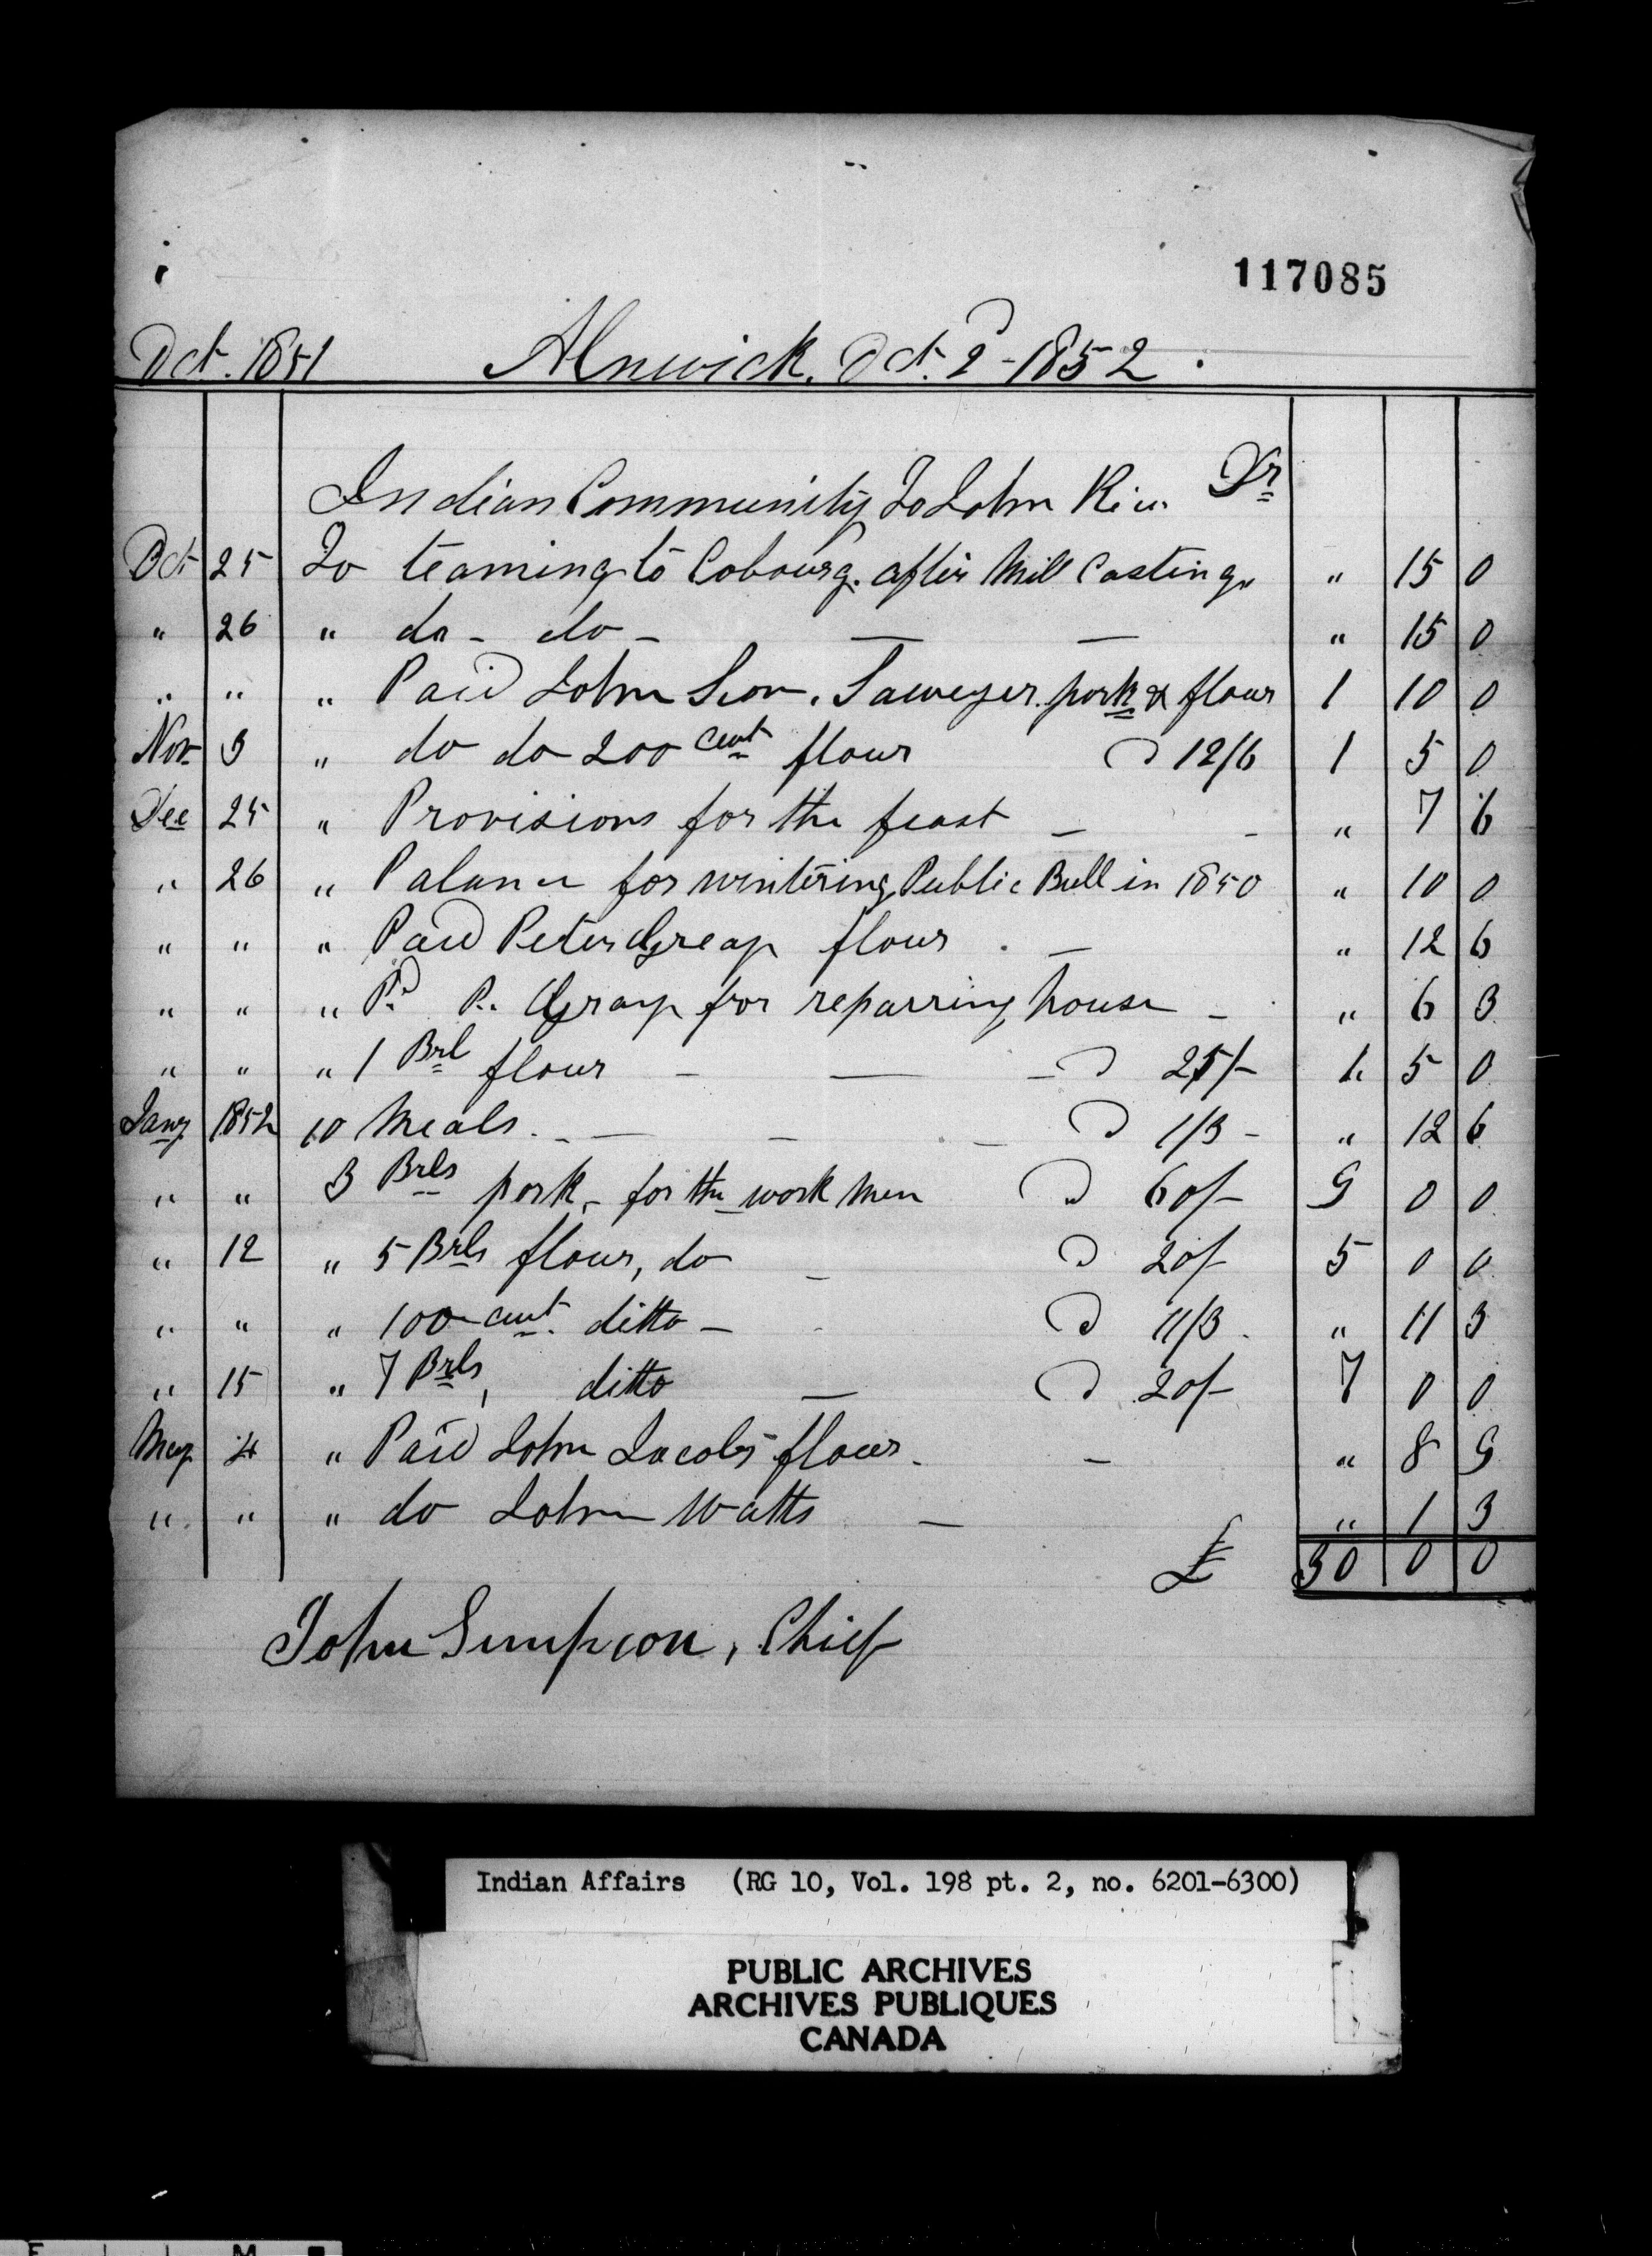 117085
Oct. 1851 Alnwick, Oct. 2d - 1852.
Indian Community To John Rice Dr
Oct 25 To teaming to Cobourg after Mill Castings " 15 0
" 26 " do - do - — — " 15 0
" " " Paid John Sr. Sawyer pork & flour 1 10 0
Nov 3 " do do 200 cwt flour @ 12/6 1 5 0
Dec 25 " Provisions for the feast - - " 7 6
" 26 " Palance for wintering Public Bull in 1850 " 10 0
" " " Paid Peter Greay flour . - " 12 6
" " " Pd P. Gray for reparring house - " 6 3
" " " 1 Brl flour - — - @ 25/- 1 5 0
Jany 1852 10 Meals - — - - @ 1/3 - " 12 6
" " 3 Brls pork - for the work men @ 60/- 9 0 0
" 12 " 5 Brls flour, do - @ 20/- 5 0 0
" " " 100 cwt. ditto - - @ 11/3 " 11 3
" 15 " 7 Brls, ditto — @ 20/- 7 0 0
May 4 " Paid John Jacobs flour - - " 8 9
" " " do John Watts — " 1 3
£ 30 0 0
John Simpson, Chief
Indian Affairs (RG 10, Vol. 198 pt. 2, no. 6201-6300)
PUBLIC ARCHIVES
ARCHIVES PUBLIQUES
CANADA